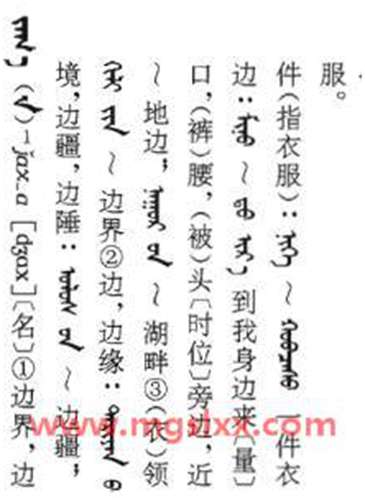 ᠵᠠᠬ᠎ᠠ ( ) jax_a [dʒɑx]〔名〕①边界,边
境,边疆,边陲: ~ 边疆;
~ 边界②边,边缘:
~ 地边; ~ 湖畔③(衣)领
口,(裤)腰,(被)头〔时位〕旁边,近
边: ~ 到我身边来〔量〕
件(指衣服):ᠨᠢᠭᠡ ~ 一件衣
服。
www.mgslxx.com